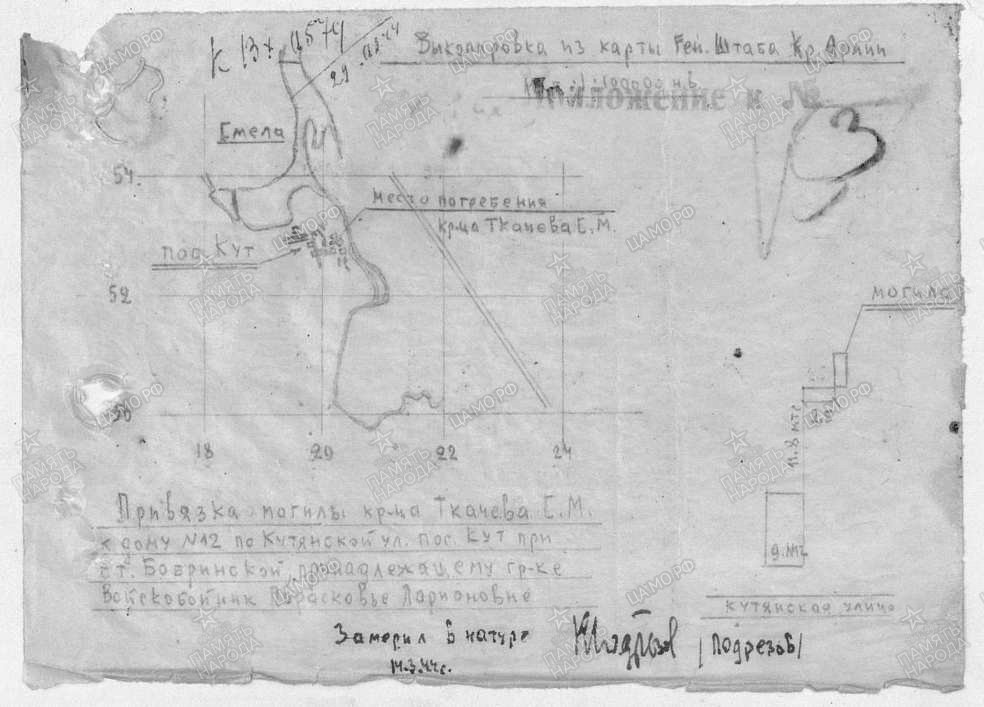 К 137
29
Выкопировка из карты Ген. Штаба Кр. Армии
1:100000
Приложение к №
3
Смела
54
место погребения
кр-ца Ткачева Е. М.
пос. Кут
52
могила
50
18 20 22 24
11.8 мтр
д. №12
Привязка могилы кр-ца Ткачева Е. М.
к дому №12 по Кутянской ул. пос. Кут при
ст. Бобринской, принадлежащему гр-ке
Войскобойник Парасковье Ларионовне
Кутянская улица
Замерил в натуре
/Подрезов/
14.3.44г.
ПАМЯТЬ НАРОДА
ЦАМО.РФ